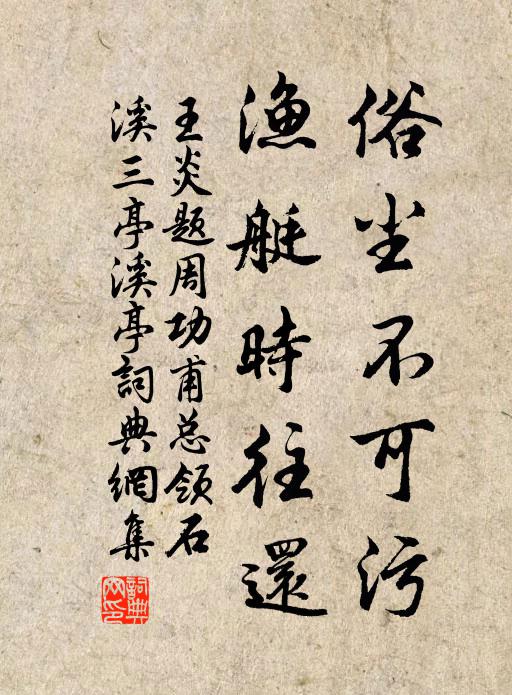 俗尘不可污
渔艇時往還
王炎题周功甫总领石
溪三亭溪亭詞典網集
詞典网印